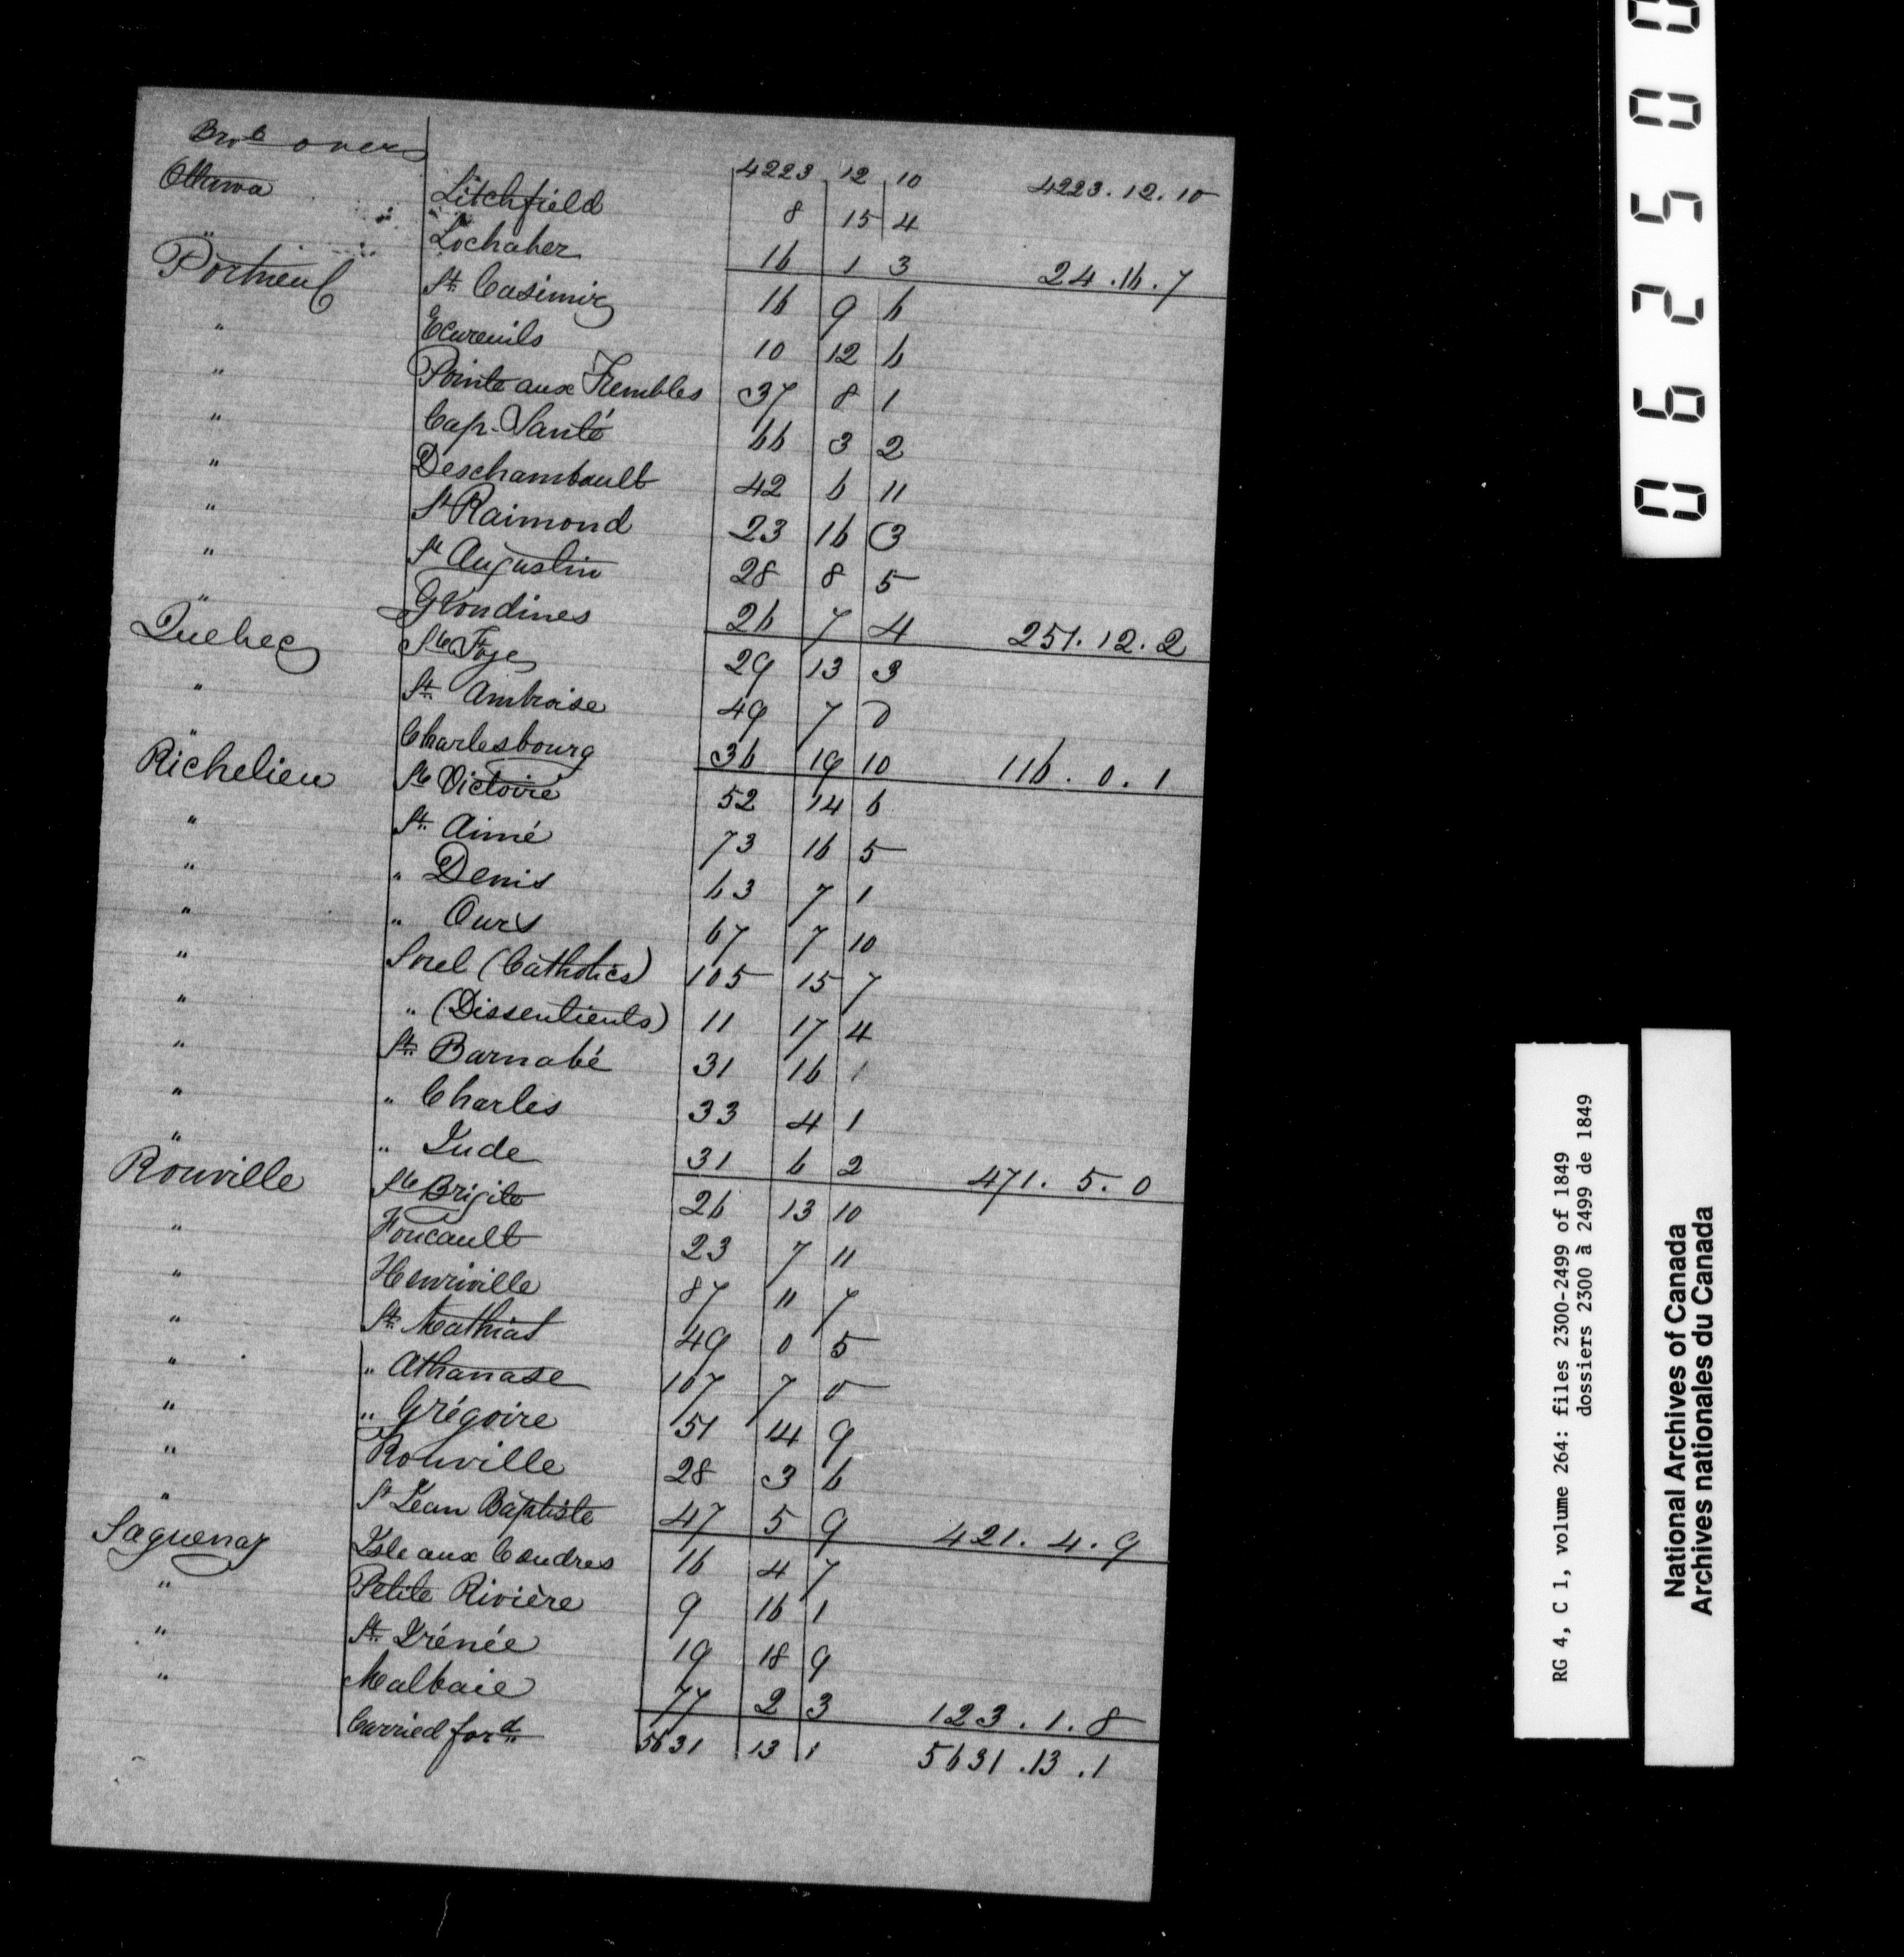 Brot over 4223 12 10 4223.12.10
Ottawa Litchfield 8 15 4
" Lochaber 16 1 3 24.16.7
Portneuf St. Casimir 16 9 6
" Ecureuils 10 12 6
" Pointe aux Trembles 37 8 1
" Cap-Santé 66 3 2
" Deschambault 42 6 11
" St Raimond 23 16 3
" St Augustin 28 8 5
" Grondines 26 7 4 251.12.2
Quebec Ste Foye 29 13 3
" St. Ambroise 49 7 0
" Charlesbourg 36 19 10 116.0.1
Richelieu Ste Victoire 52 14 6
" St. Aimé 73 16 5
" " Denis 63 7 1
" " Ours 67 7 10
" Sorel (Catholics) 105 15 7
" " (Dissentients) 11 17 4
" St. Barnabé 31 16 1
" " Charles 33 4 1
" " Jude 31 6 2 471.5.0
Rouville Ste Brigite 26 13 10
" Foucault 23 7 11
" Henriville 87 11 7
" St. Mathias 49 0 5
" " Athanase 107 7 0
" " Grégoire 51 14 9
" Rouville 28 3 6
" St Jean Baptiste 47 5 9 421.4.9
Saguenay Isle aux Coudres 16 4 7
" Petite Rivière 9 16 1
" St. Irénée 19 18 9
" Malbaie 77 2 3 123.1.8
Carried ford 5631 13 1 5631.13.1
0 6 2 5 0 0
RG 4, C 1, volume 264: files 2300-2499 of 1849
dossiers 2300 à 2499 de 1849
National Archives of Canada
Archives nationales du Canada